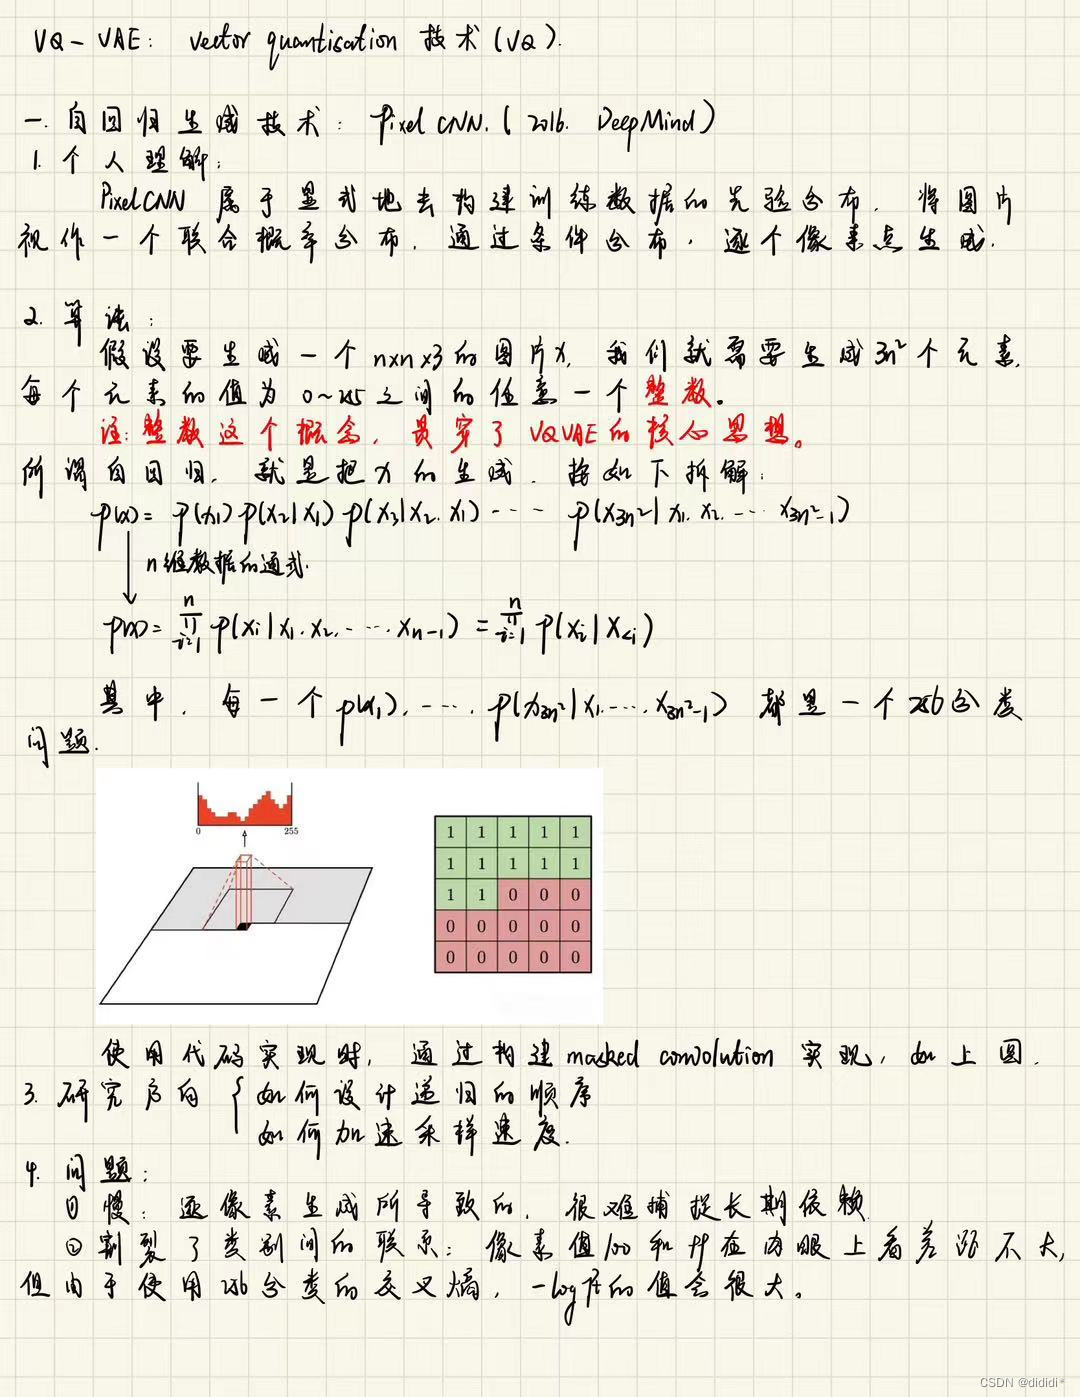 VQ-VAE: vector quantisation 技术(VQ).
一. 自回归生成技术: Pixel CNN. (2016. DeepMind)
1. 个人理解:
PixelCNN 属于显式地去构建训练数据的先验分布. 将图片
视作一个联合概率分布. 通过条件分布, 逐个像素点生成.
2. 算法:
假设要生成一个 n×n×3的图片x, 我们就需要生成3n²个元素.
每个元素的值为 0~255之间的任意一个整数。
注: 整数这个概念, 贯穿了VQVAE的核心思想。
所谓自回归, 就是把x的生成, 按如下拆解:
p(x) = p(x₁) p(x₂|x₁) p(x₃|x₂.x₁) ---- p(x₃ₙ²|x₁.x₂.---x₃ₙ²₋₁)
n维数据的通式.
p(x) = ∏ⁿᵢ₌₁ p(xᵢ|x₁.x₂.----xₙ₋₁) = ∏ⁿᵢ₌₁ p(xᵢ|x<ᵢ)
其中. 每一个 p(x₁), ---. p(x₃ₙ²|x₁.---.x₃ₙ²₋₁) 都是一个256分类
问题.
0 255
1 1 1 1 1
1 1 1 1 1
1 1 0 0 0
0 0 0 0 0
0 0 0 0 0
使用代码实现时, 通过构建 masked convolution 实现, 如上图.
3. 研究方向 { 如何设计递归的顺序
如何加速采样速度.
4. 问题:
① 慢: 逐像素生成所导致的, 很难捕捉长期依赖
② 割裂了类别间的联系: 像素值100和99在肉眼上看差距不大,
但由于使用256分类的交叉熵, -log 的值会很大。
CSDN @dididi*